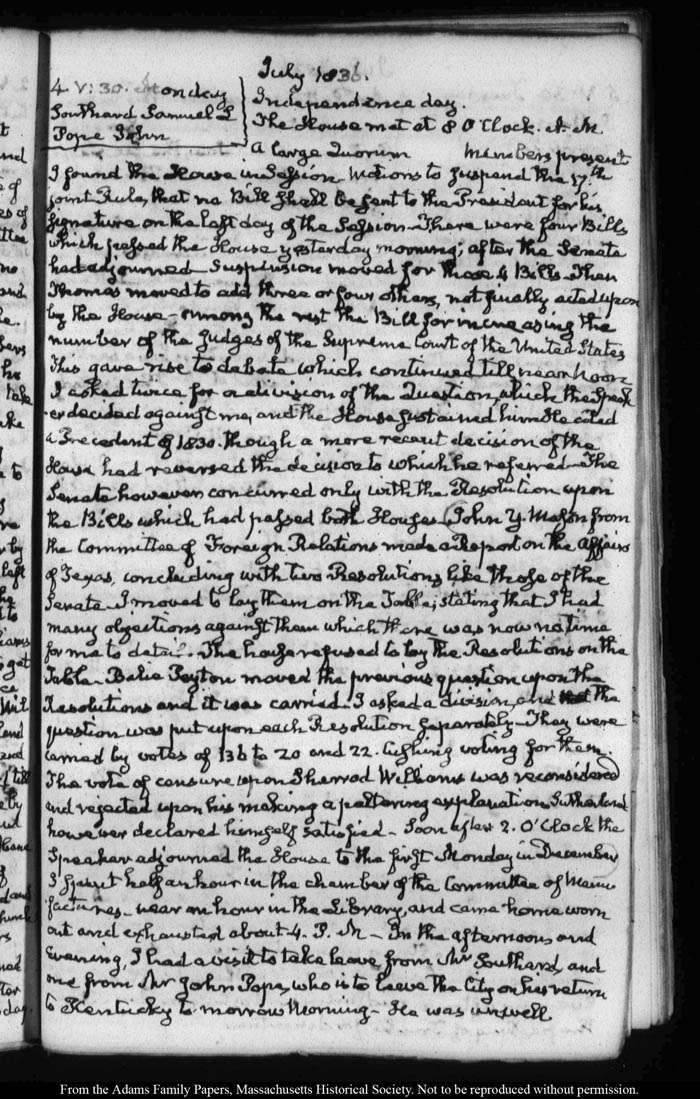 July 1836.
4. V: 30. Monday
Southard Samuel L
Pope John
Independence day.
The House met at 8 O'Clock. A. M.
A large Quorum Members present
I found the House in Session. Motions to suspend the 17th
joint Rule, that no Bill shall be sent to the President for his
signature on the last day of the Session. There were four Bills
which passed the House yesterday morning; after the Senate
had adjourned. Suspension moved for those 4 Bills. Then
Thomas moved to add three or four others, not finally acted upon
by the House—among the rest the Bill for increasing the
number of the Judges of the Supreme Court of the United States
This gave rise to debate which continued till near Noon
I asked twice for a division of the Question, which the Speak
er decided against me, and the House sustained him. He cited
a Precedent of 1830. though a more recent decision of the
House had reversed the decision to which he referred. The
Senate however concurred only with the Resolution upon
the Bills which had passed both Houses. John Y. Mason from
the Committee of Foreign Relations made a Report on the Affairs
of Texas, concluding with two Resolutions like those of the
Senate. I moved to lay them on the Table; stating that I had
many objections against them which there was now no time
for me to detail. The house refused to lay the Resolutions on the
Table. Balie Peyton moved the previous question upon the
Resolutions and it was carried. I asked a division, and the
question was put upon each Resolution separately. They were
carried by votes of 136 to 20 and 22. voting for them.
The vote of censure upon Sherrod Williams was reconsidered
and rejected upon his making a paltering explanation. Sutherland
however declared himself satisfied. Soon after 2. O'Clock the
Speaker adjourned the House to the first Monday in December
I spent half an hour in the chamber of the Committee of Manu
factures—near an hour in the Library, and came home worn
out and exhausted about 4. P. M—In the afternoon and
Evening, I had a visit to take leave from Mr Southard, and
one from Mr John Pope, who is to leave the City on his return
to Kentucky to morrow Morning—He was unwell
From the Adams Family Papers, Massachusetts Historical Society. Not to be reproduced without permission.